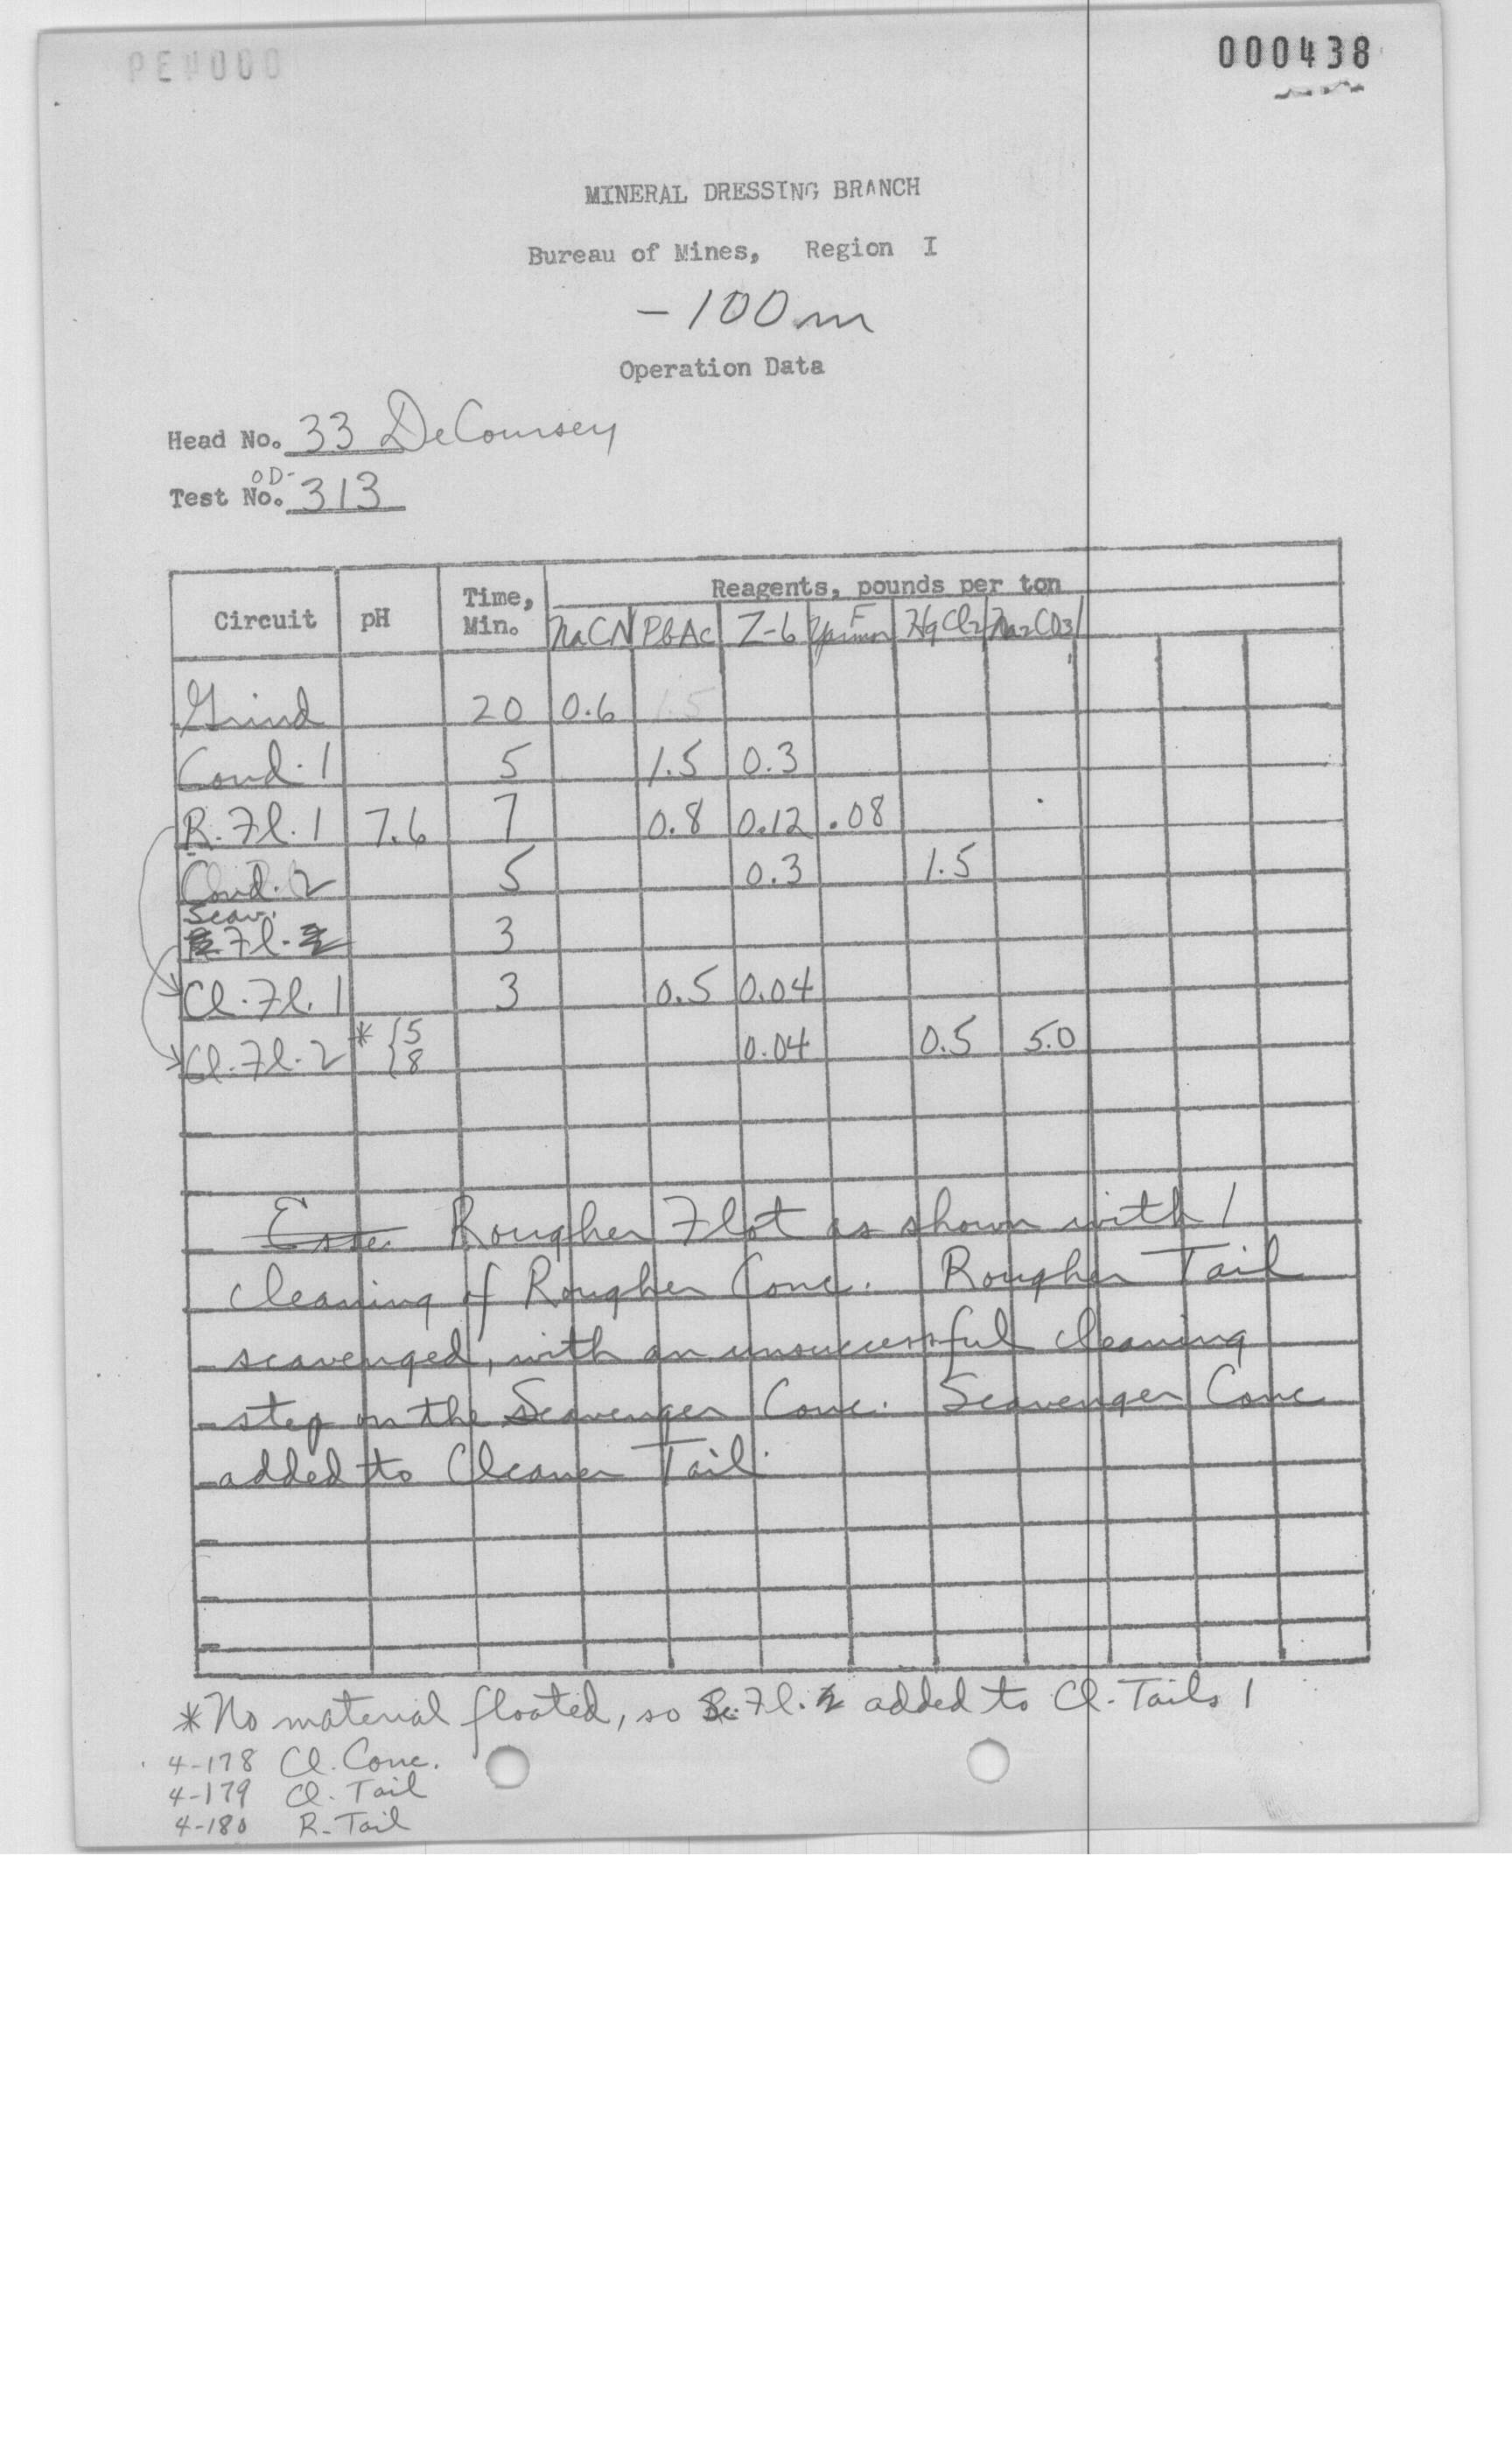 000438
MINERAL DRESSING BRANCH
Bureau of Mines, Region I
-100m
Operation Data
Head No. 33 DeCoursey
OD-
Test No. 313
Reagents, pounds per ton
Circuit pH Time, Min. NaCN PbAc Z-6 F HgCl2 Na2CO3
Grind 20 0.6 1.5
Cond. 1 5 1.5 0.3
R. Fl. 1 7.6 7 0.8 0.12 .08
Cond. 2 5 0.3 1.5
Scav.
Fl. 3
Cl. Fl. 1 3 0.5 0.04
Cl. Fl. 2 * {5 8 0.04 0.5 5.0
Rougher Flot as shown with 1
cleaning of Rougher Conc. Rougher Tail
scavenged, with an unsuccessful cleaning
step on the Scavenger Conc. Scavenger Conc
added to Cleaner Tail.
*No material floated, so Sc. Fl. added to Cl. Tails 1
4-178 Cl. Conc.
4-179 Cl. Tail
4-180 R. Tail